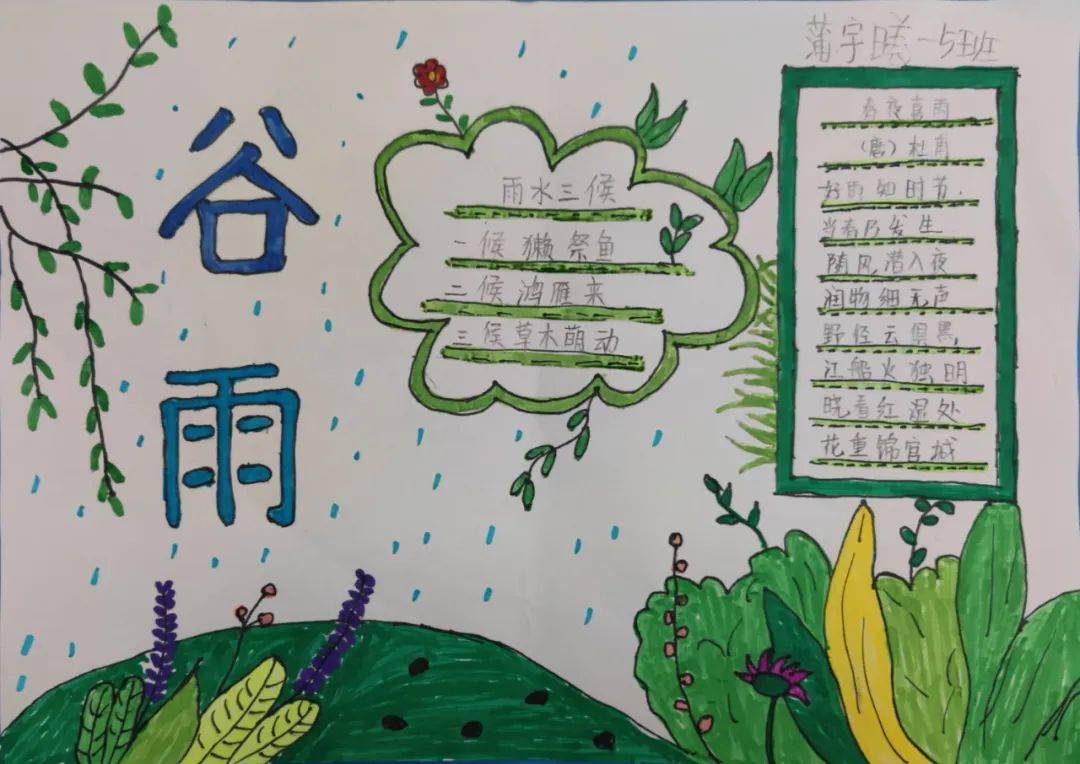 蒲宇曦一5班
谷雨
雨水三候
一候獭祭鱼
二候鸿雁来
三候草木萌动
春夜喜雨
（唐）杜甫
好雨知时节，
当春乃发生
随风潜入夜
润物细无声
野径云俱黑，
江船火独明
晓看红湿处
花重锦官城